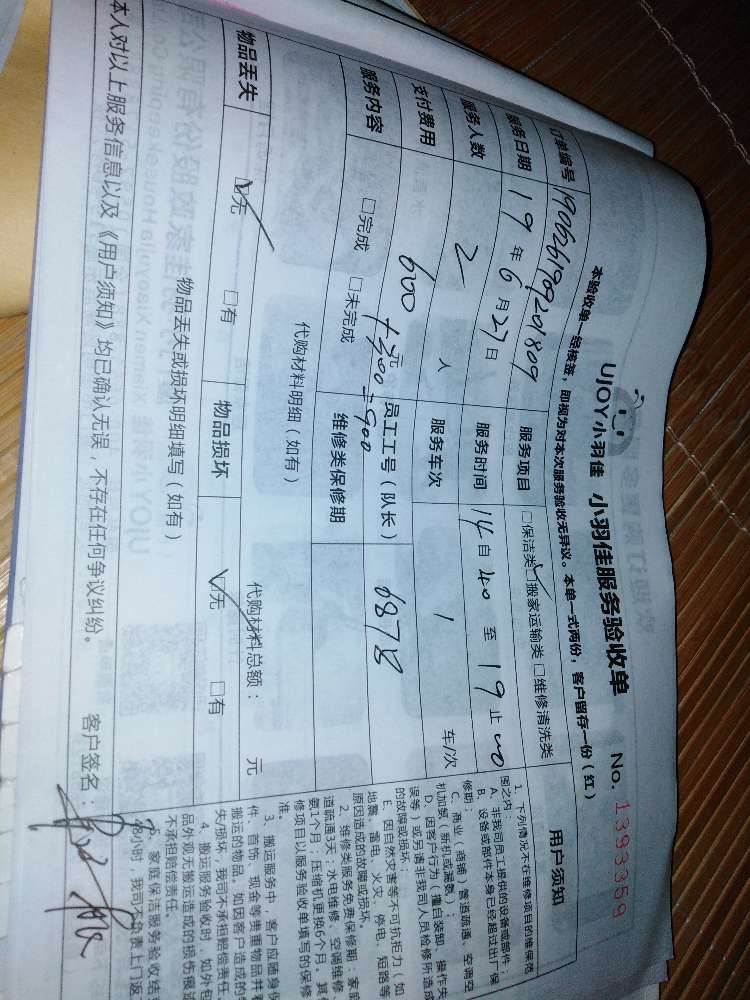 UJOY小羽佳 小羽佳服务验收单 No. 1393359
本验收单一经核签，即视为对本次服务验收无异议。本单一式两份，客户留存一份（红）
订单编号 190626199201809 服务项目 □保洁类 ☑搬家运输类 □维修清洗类
服务日期 19年6月27日 服务时间 14自40至19止00
服务人数 2人 服务车次 1 车/次
支付费用 600元+300=900 员工工号（队长） 6878
服务内容 □完成 □未完成 维修类保修期
代购材料明细（如有） 代购材料总额： 元
物品丢失 ☑无 □有 物品损坏 ☑无 □有
物品丢失或损坏明细填写（如有）
本人对以上服务信息以及《用户须知》均已确认无误，不存在任何争议纠纷。 客户签名：
用户须知
1. 下列情况不在维修项目的维保范
围之内：
A、非我司员工提供的设备或部件；
B、设备或部件本身已经超过出厂保
修期；
C、商业（商铺）管道疏通、空调空
机加氨、新机或漏氨）；
D、因客户行为（擅自装卸、操作失
误等）或另请非我司人员检修所造成
的故障或损坏；
E、因自然灾害等不可抗拒力（如
地震、雷电、火灾、停电、短路等
原因造成的故障或损坏。
2. 维修类服务免费保修期：家庭
道疏通3天；水电维修、空调维修
氨1个月，压缩机更换6个月。其
修项目以服务验收单填写的保修
准。
3. 搬运服务中，客户应随身
件、首饰、现金等贵重物品并
搬运的物品，如因客户造成的
失/损坏，我司不承担赔偿责任。
4. 搬运服务验收时，如外包
品外观无搬运造成的损伤痕迹
不承担赔偿责任。
5. 家庭保洁服务验收结
48小时，我司不负责上门返